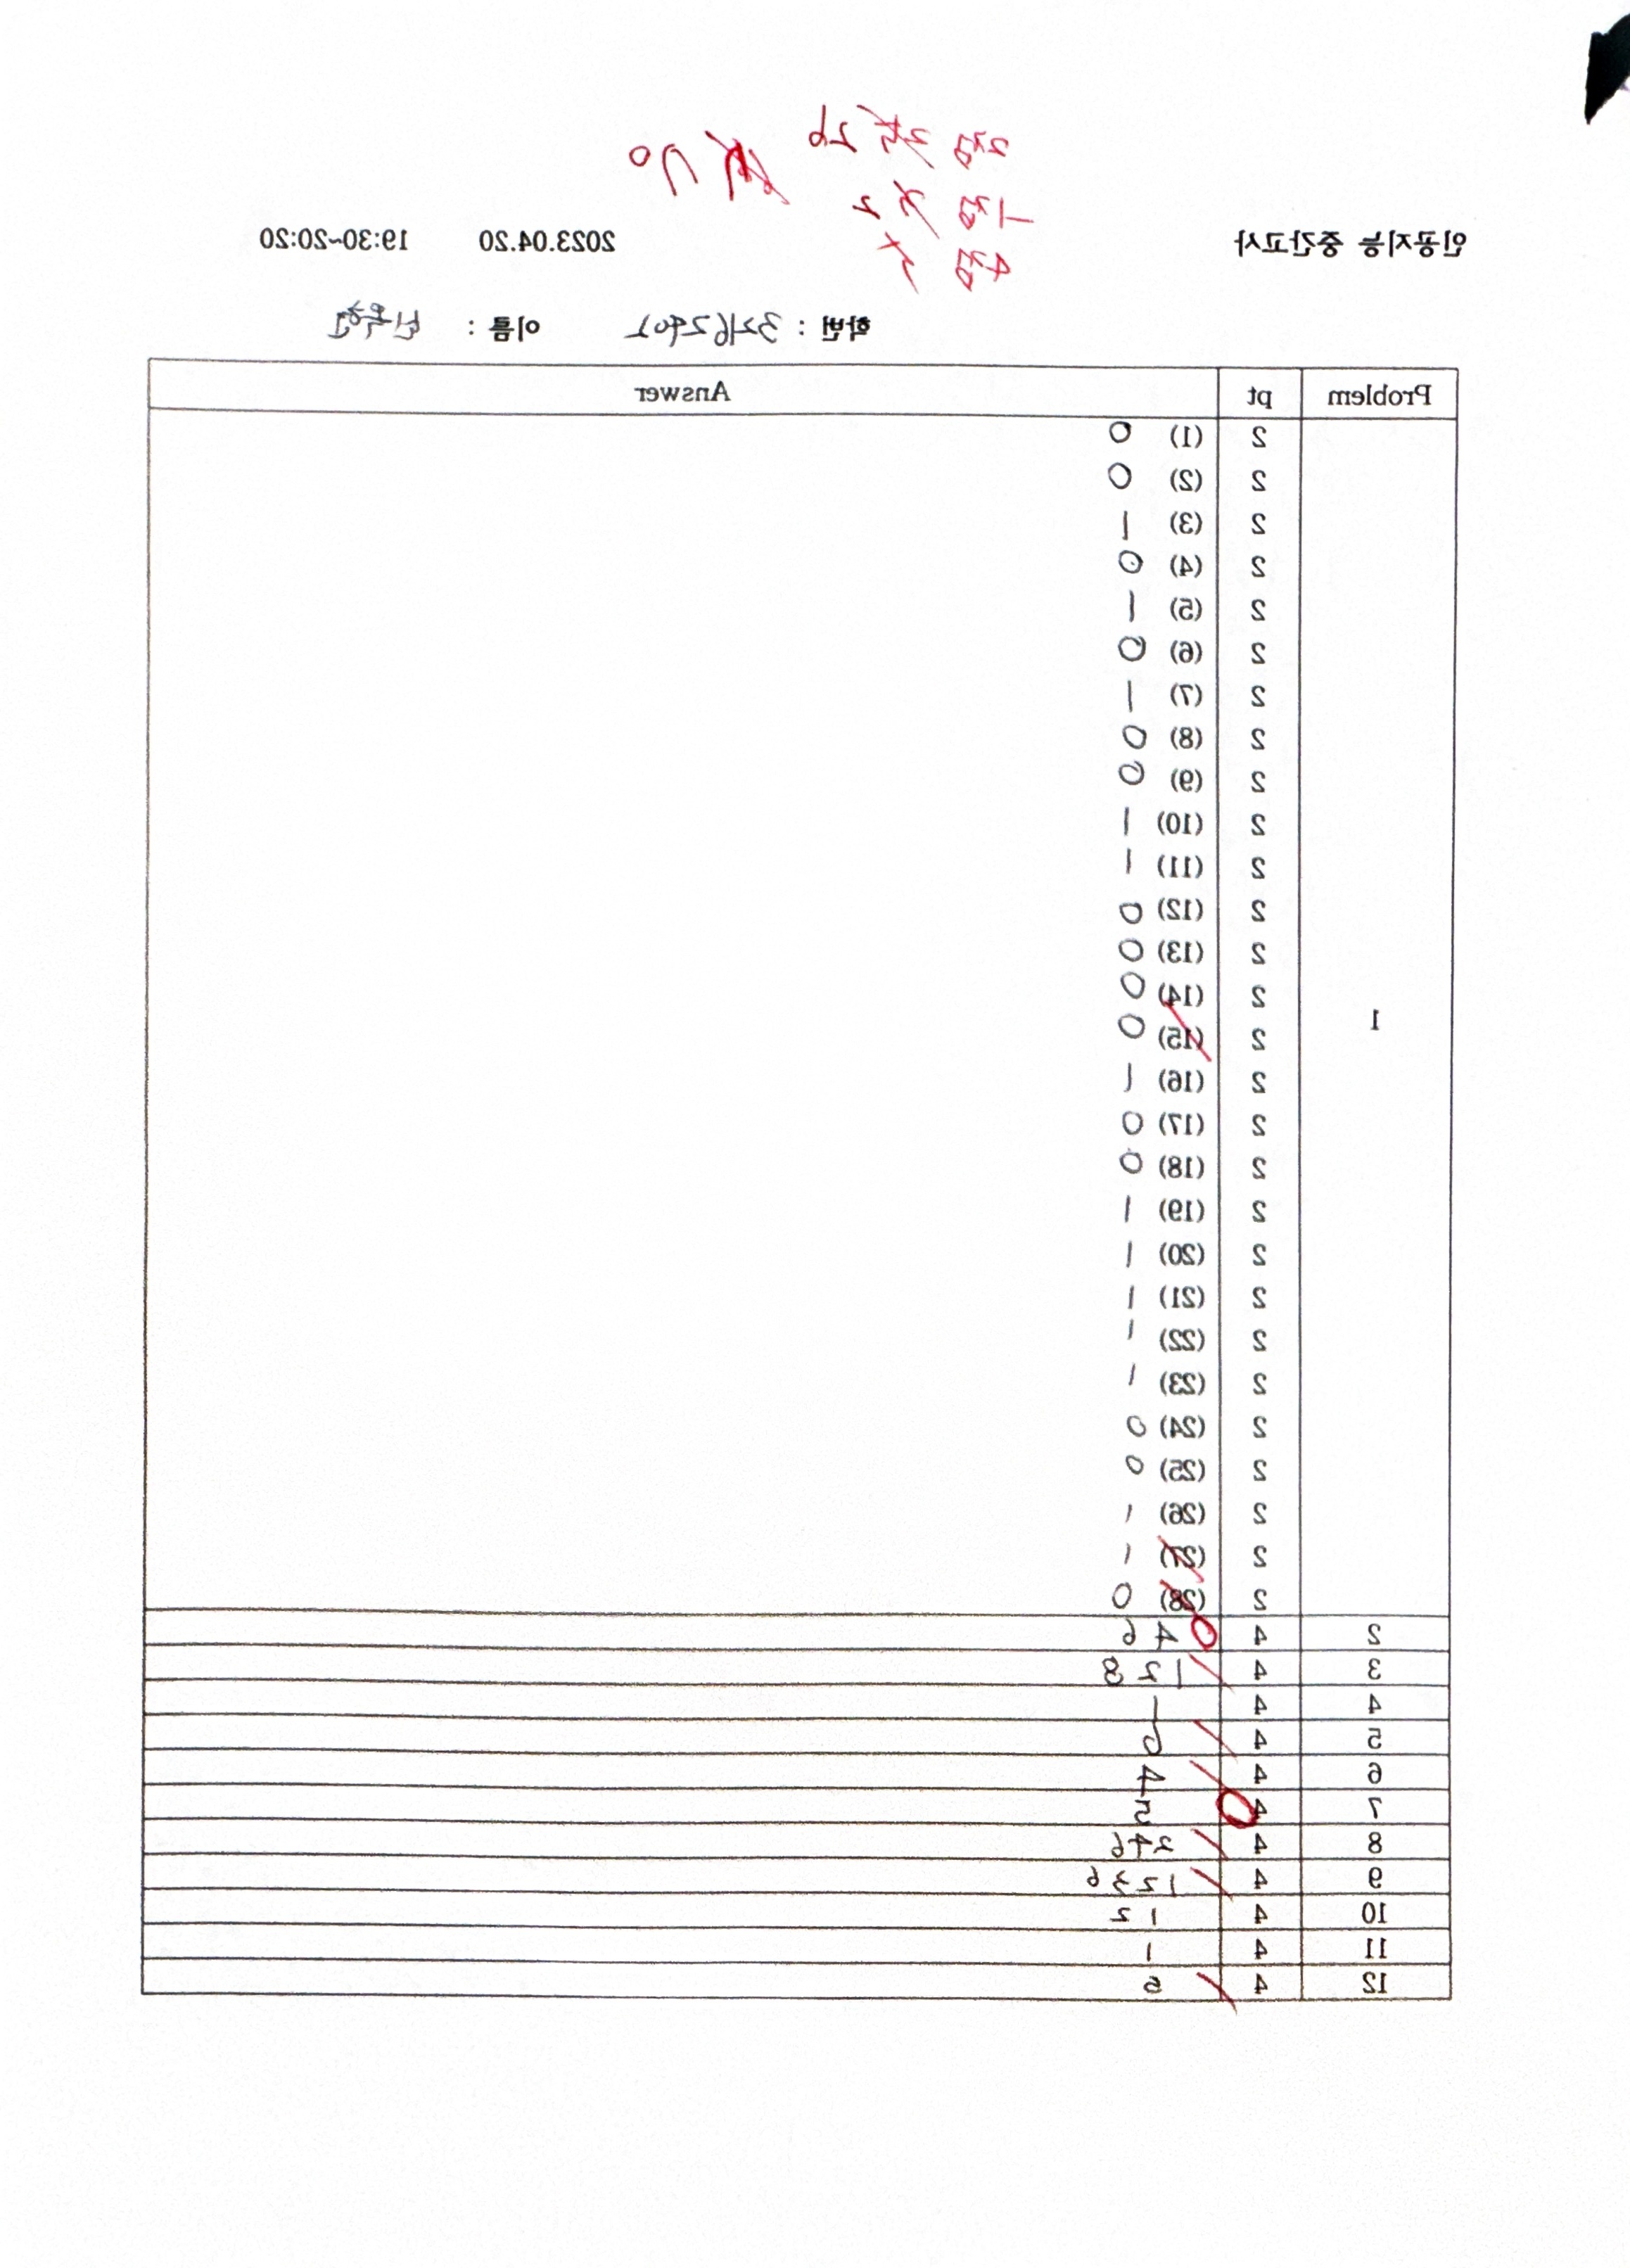 2점 26
1점 2
4점
70
인공지능 중간고사 2023.04.20 19:30~20:20
학번 : 32162902 이름 :
Problem pt Answer
1
2 (1) 0
2 (2) 0
2 (3) 1
2 (4) 0
2 (5) 1
2 (6) 0
2 (7) 1
2 (8) 0
2 (9) 0
2 (10) 1
2 (11) 1
2 (12) 0
2 (13) 0
2 (14) 0
2 (15) 0
2 (16) 1
2 (17) 0
2 (18) 0
2 (19) 1
2 (20) 1
2 (21) 1
2 (22) 1
2 (23) 1
2 (24) 0
2 (25) 0
2 (26) 1
2 (27) 1
2 (28) 0
2 4 4 6
3 4 1 2 3
4 4 1
5 4 6
6 4 4
7 4 5
8 4 2 4 6
9 4 1 2 3 6
10 4 1 2
11 4 1
12 4 5